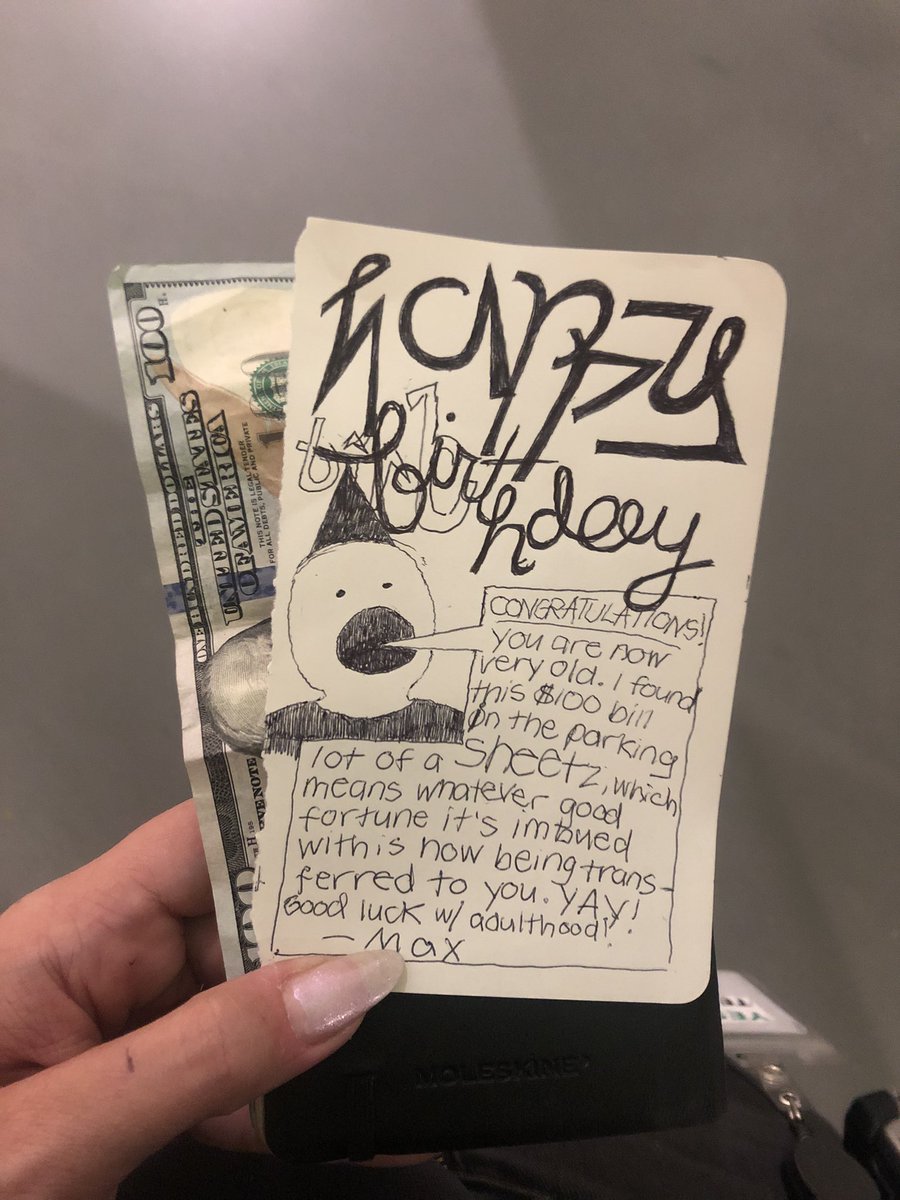 happy
birthday
CONGRATULATIONS!
you are now
very old. I found
this $100 bill
on the parking
lot of a Sheetz, which
means whatever good
fortune it's imbued
with is now being trans-
ferred to you. YAY!
Good luck w/ adulthood!
— Max
MOLESKINE
100
ONE HUNDRED DOLLARS
THE
UNITED STATES
OF AMERICA
THIS NOTE IS LEGAL TENDER
FOR ALL DEBTS, PUBLIC AND PRIVATE
100